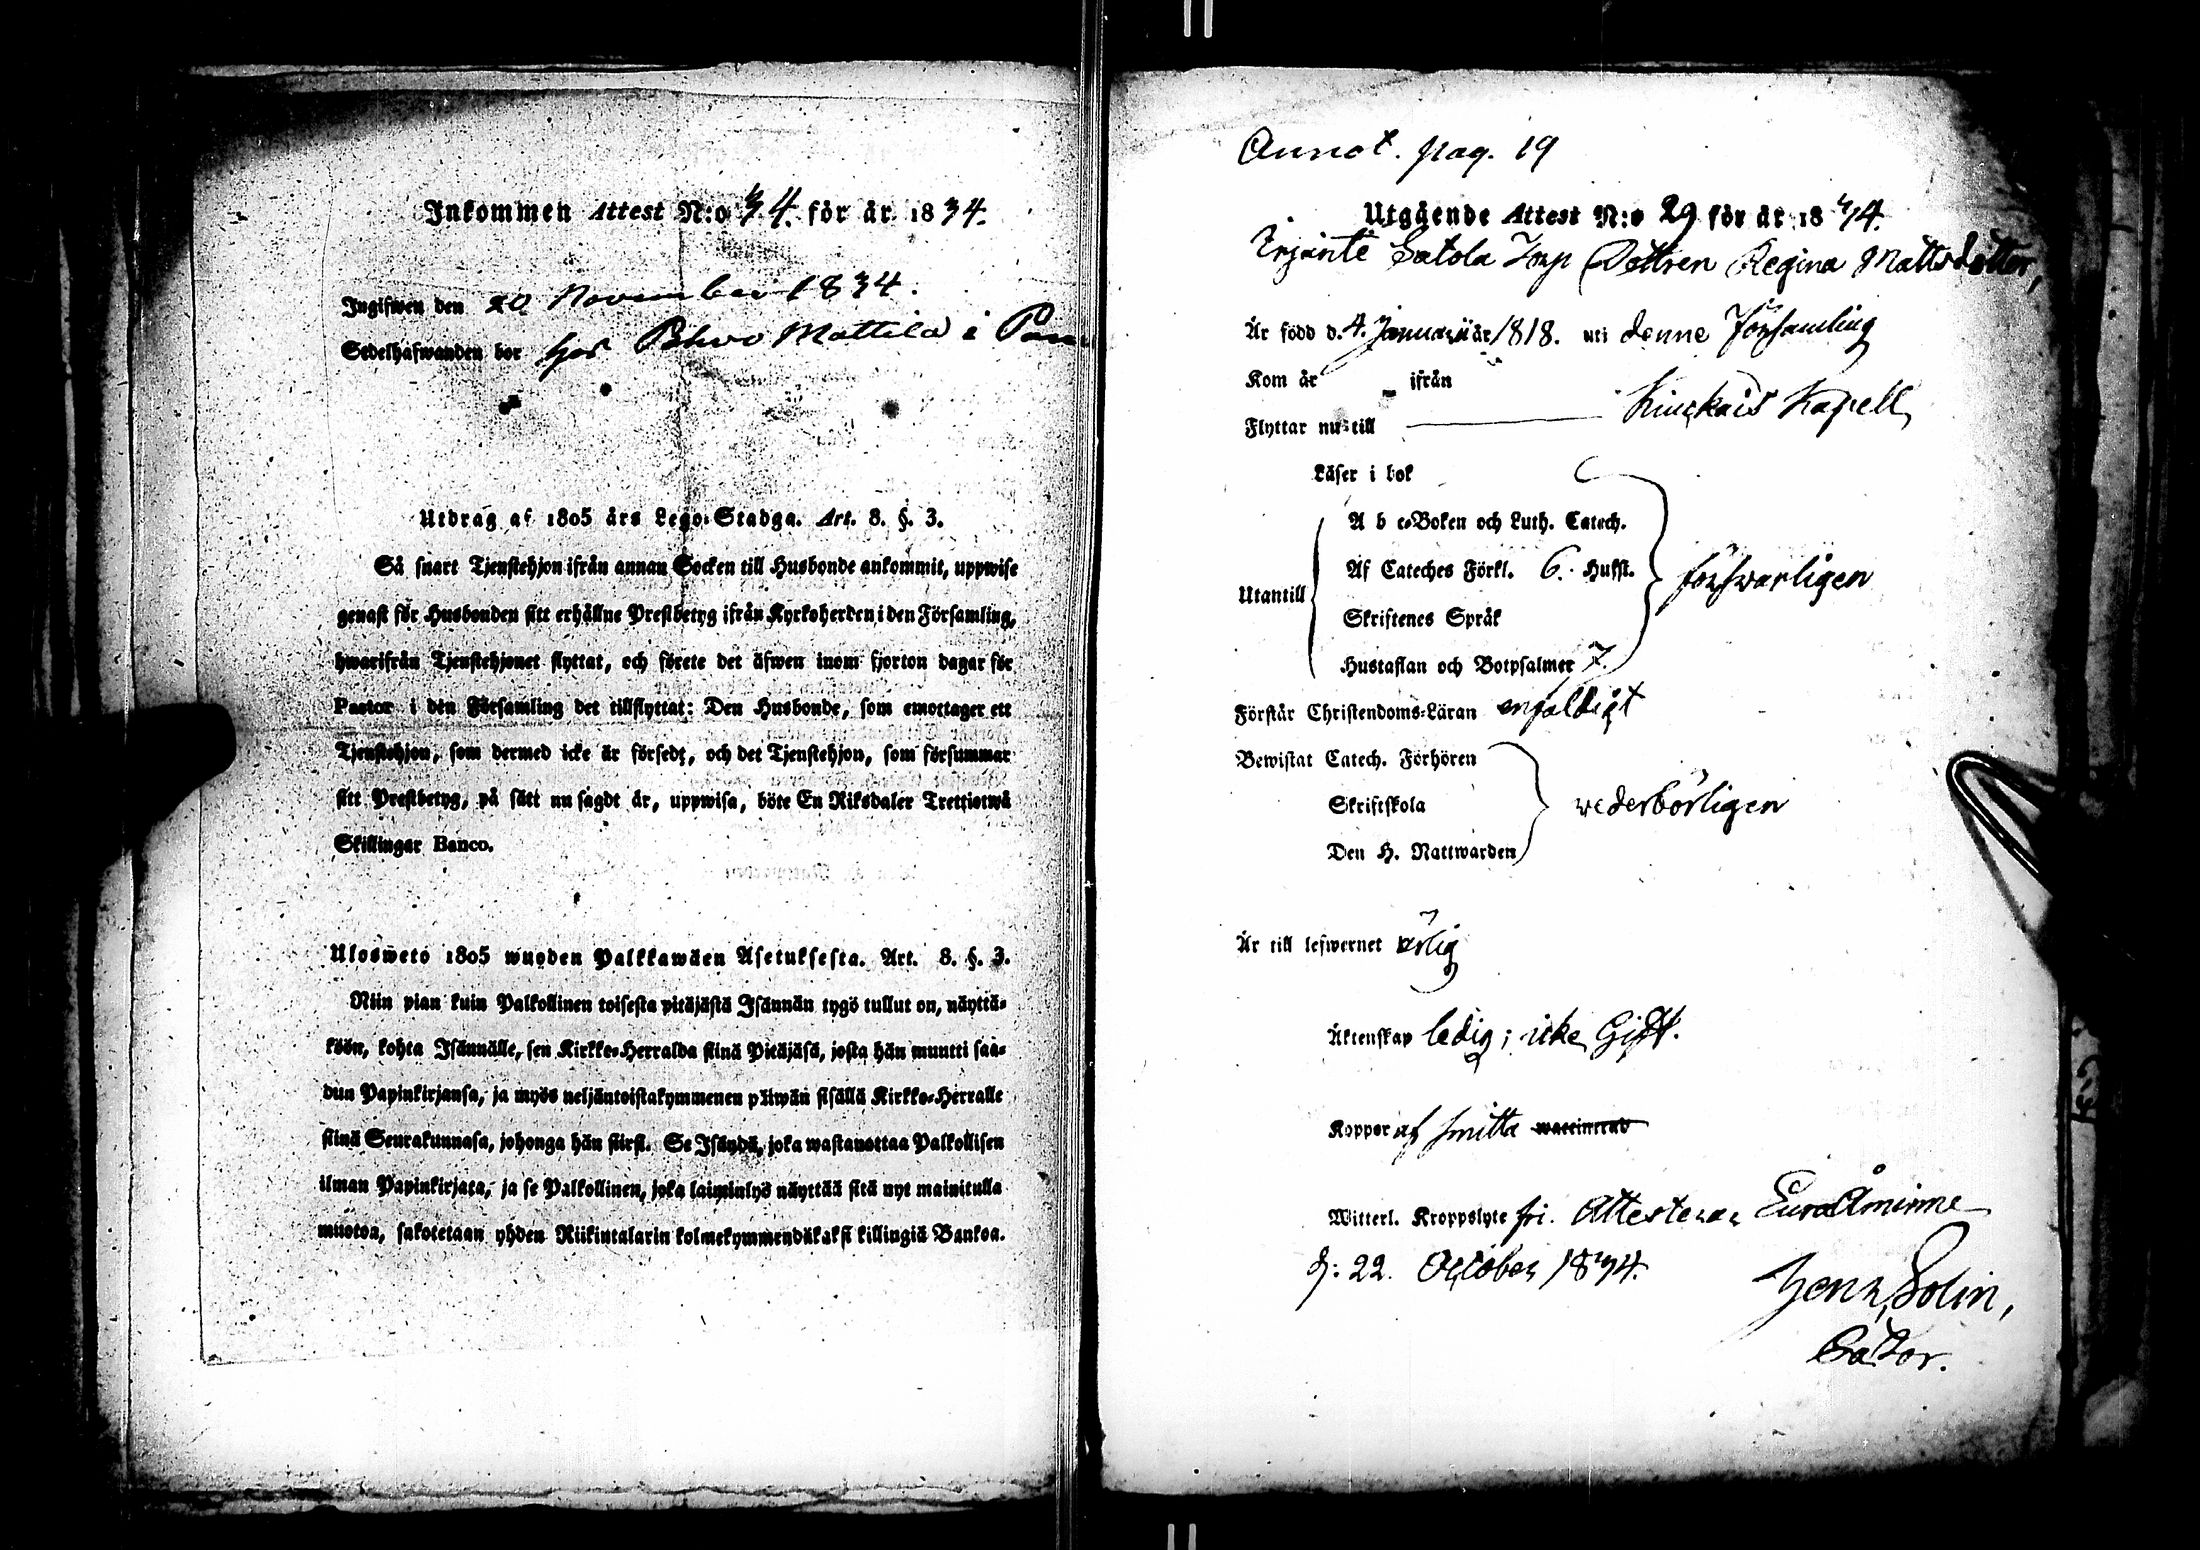 Inkommen Attest N:o 34. för år 1834.
Ingifwen den 20 November 1834.
Sedelhafwanden bor hos Mattila i
Utdrag af 1805 års Lego-Stadga. Art. 8. §. 3.
Så snart Tjenstehjon ifrån annan Socken till Husbonde ankommit, uppwise
genast för Husbonden sitt erhållne Prestbetyg ifrån Kyrkoherden i den Församling,
hwarifrån Tjenstehjonet flyttat, och förete det äfwen inom fjorton dagar för
Pastor i den Församling det tillflyttat: Den Husbonde, som emottager ett
Tjenstehjon, som dermed icke är försedt, och det Tjenstehjon, som försummar
sitt Prestbetyg, på sätt nu sagdt är, uppwisa, böte En Riksdaler Trettiotwå
Skillingar Banco.
Ulosweto 1805 wuoden Palkkawäen Asetuksesta. Art. 8. §. 3.
Niin pian kuin Palkollinen toisesta pitäjästä Isännän tygö tullut on, näyttä-
köön, kohta Isännälle, sen Kirkko-Herralda siinä Pitäjäsä, josta hän muutti saa-
dun Papinkirjansa, ja myös neljäntoistakymmenen päiwän sisällä Kirkko-Herralle
siinä Seurakunnasa, johonga hän siirsi. Se Isändä, joka wastanottaa Palkollisen
ilman Papinkirjata, ja se Palkollinen, joka laiminlyö näyttää sitä nyt mainitulla
muotoa, sakotetaan yhden Riikintalarin kolmekymmendäkaksi killingiä Bankoa.
Annot. pag. 19
Utgående Attest N:o 29 för år 1834.
Satola Dottren Regina Mattsdotter,
Är född d. 4. Januarii år 1818. uti denne Församling
Kom år - ifrån
Flyttar nu till Kiuckais Kapell,
Läser i bok
A b c-Boken och Luth. Catech.
Af Cateches Förkl. 6. Hufst.
Utantill försvarligen
Skriftenes Språk
Hustaflan och Botpsalmer 7.
Förstår Christendoms-Läran enfaldigt
Bewistat Catech. Förhören
Skriftskola wederbörligen
Den H. Nattwarden
Är till lefwernet ärlig
Äktenskap ledig; icke Gift.
Koppor af smitta waccinerad
Witterl. Kroppslyte fri. Attesterar Euraåminne
d: 22. October 1834.
Henr, Solin,